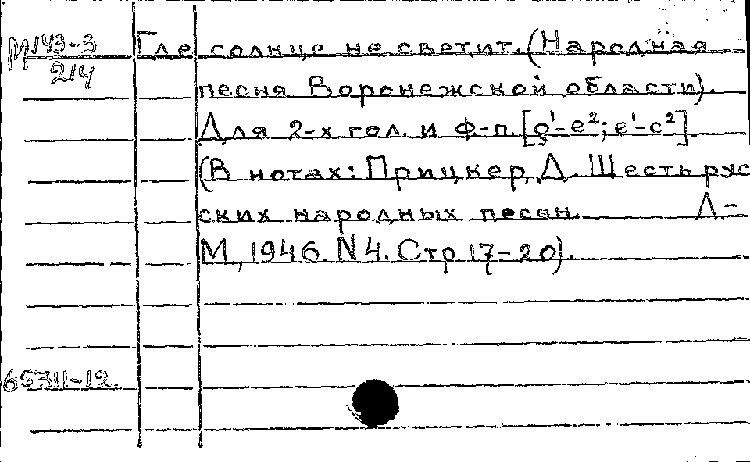 М143-3 Где солнце не светит. (Народная
214 песня Воронежской области).
Для 2-х гол. и ф-п. [e¹-e²; e¹-c²].
(В нотах: Прицкер, Д. Шесть рус
ских народных песен. Л-
М, 1946. N4. Стр 17-20).
65711-12.